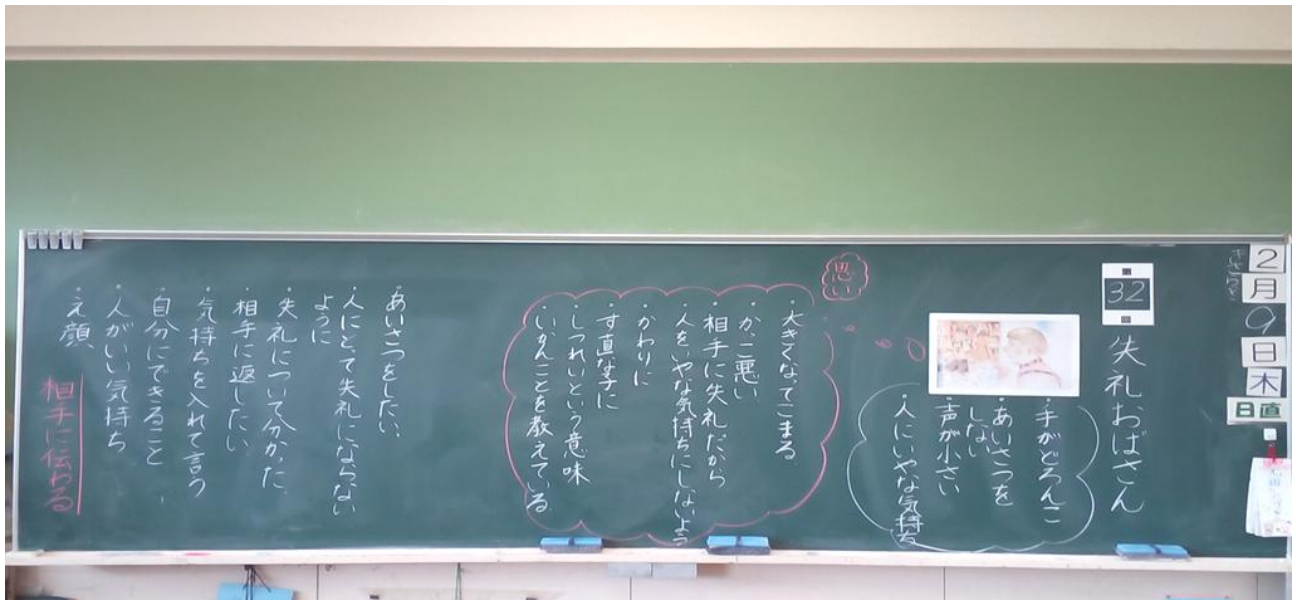 2月9日木
きさらぎ
日直
32
失礼おばさん
・手がどろんこ
・あいさつを
しない
・声が小さい
・人にいやな気持ち
思い
・大きくなってこまる
・かっこ悪い
・相手に失礼だから
人をいやな気持ちにしないよう
・かわりに
・す直な子に
・しつれいという意味
・いけんことを教えている
・あいさつをしたい
・人にとって失礼にならない
ように
・失礼について分かった
・相手に返したい
・気持ちを入れて言う
・自分にできること
・人がいい気持ち
・え顔
相手に伝わる